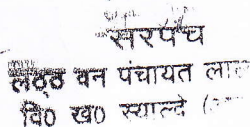 सरपंच
लठ्ठ वन पंचायत
वि० ख० स्याल्दे